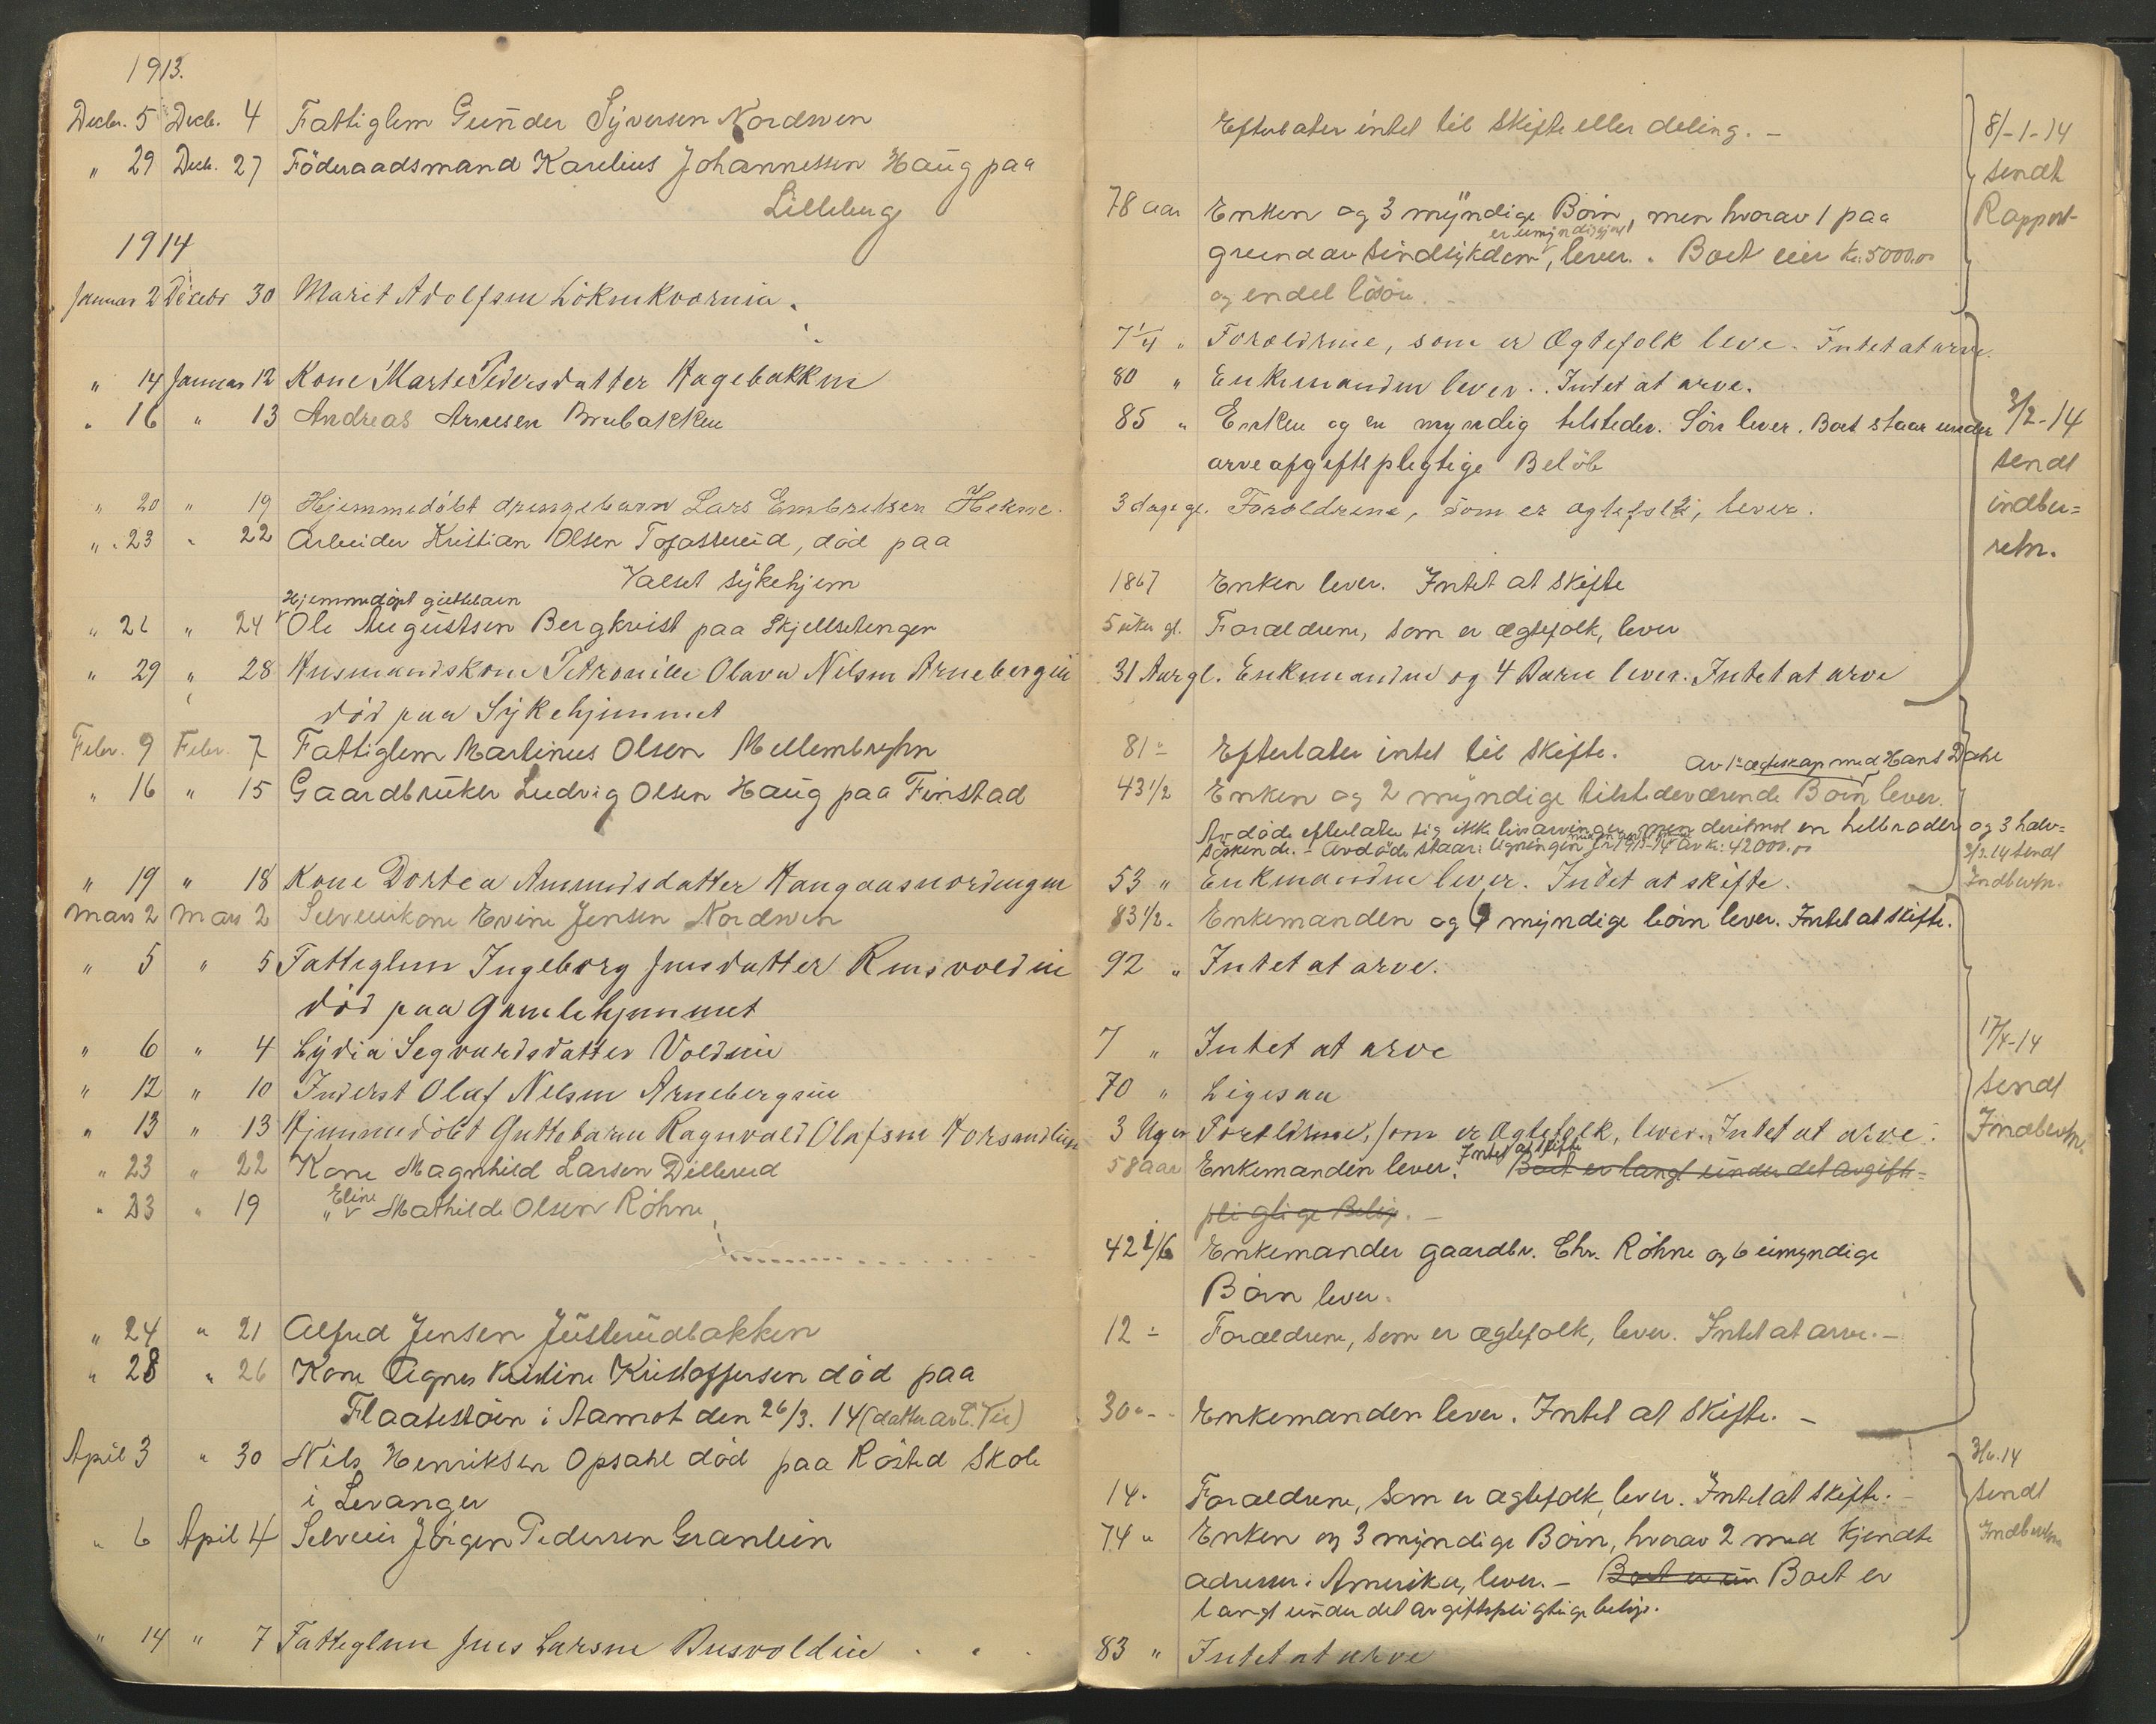 1913.
Decbr. 5 Decb. 4 Fattiglem Gunder Syversen Nordwen
" 29 Decb. 27 Föderaadsmand Karelius Johannessen Haug paa
Lilleberg
1914
Januar 2 Decebr 30 Marit Adolfsen
" 14 Januar 12 Kone Marte Pedersdatter Hagebakken
" 16 " 13 Andreas Arnesen Brubakken
" 20 " 19 Hjemmedöbt drengebarn Lars Embretsen
" 23 " 22 Arbeider Kristian Olsen död paa
Valset Sykehjem
Hjemmedöpt guttebarn
" " 24 Ole Augustsen Bergkvist paa
" 29 " 28 Husmandskone Petronille Olava Nilsen Arnebergeie
död paa Sykehjemmet
Febr. 9 Febr. 7 Fattiglem Martinus Olsen
" 16 " 15 Gaardbruker Ludvig Olsen Haug paa Finstad
" 19 " 18 Kone Dortea Amundsdatter
Mars 2 Mars 2 Selveierkone Evine Jensen Nordwen
" 5 " 5 Fattiglem Ingeborg Jensdatter
död paa Gamlehjemmet
" 6 " 4 Lydia Segvardsdatter Voldeie
" 12 " 10 Inderst Olaf Nilsen Arnebergeie
" 13 " 13 Hjemmedöbt Guttebarn Ragnvald Olafsen
" 23 " 22 Kone Magnhild Larsen Dillerud
" 23 " 19 " Eline Mathilde Olsen Röhne
" 24 " 21 Alfred Jensen Justerudbakken
" 28 " 26 Kone Agnes Kristine Kristoffersen död paa
i Aamot den 26/3. 14 (datter av
April 3 " 30 Nils Henriksen Opsahl död paa Röstad Skole
i Levanger
" 6 April 4 Selveier Jörgen Pedersen Granlien
" 14 " 7 Fattiglem Jens Larsen
Efterlater intet til Skifte eller deling. -
78 aar Enken og 3 myndige Börn, men hvorav 1 paa
er umyndiggjort
grund av Sindsykdom, lever. Boet eier kr. 5000.00
og endel lösöre.
8/-1-14
sendt
Rapport
7 1/4 " Forældrene, som er Ægtefolk leve. Intet at arve.
80 " Enkemanden lever. Intet at arve.
85 " Enken og en myndig tilstedev. Sön lever. Boet staar under
arveafgiftspligtige Belöb
3 dage gl. Forældrene, som er ægtefolk, lever.
1867 Enken lever. Intet at Skifte
5 uker gl. Forældrene, som er ægtefolk, lever
31 Aar gl. Enkemanden og 4 Barn lever. Intet at arve
3/2-14
sendt
indbe=
retn.
81 - Efterlater intet til Skifte.
Av 1ste ægteskap med Hans Dahl
43 1/2 Enken og 2 myndige tilstedeværende Börn lever.
Avdöde efterlater sig ikke livsarvinger, men derimot en helbroder og 3 halv=
söskende. - Avdöde staar i ligningen for 1913-14 av kr. 42000.00
53 " Enkmanden lever. Intet at skifte.
sendt
Indberetn.
83 1/2. Enkemanden og 6 myndige börn lever. Intet at Skifte.
92 " Intet at arve.
7 " Intet at arve
70 " Ligesaa
3 Uger Forældrene, som er Ægtefolk, lever. Intet at arve.
Intet at skifte
58 aar Enkemanden lever. Boet er langt under det avgifts=
pligtige Belöp. -
42 1/6 Enkemanden gaardbr. Chr. Röhne og 6 umyndige
Börn lever.
12 - Forældrene, som er ægtefolk, lever. Intet at arve. -
30 " - Enkemanden lever. Intet at Skifte. -
17/4-14
sendt
Indberetn.
14. Forældrene, som er ægtefolk, lever. Intet at Skifte. -
74 " Enken og 3 myndige Börn, hvorav 2 med kjendte
adresser i Amerika, lever. - Boet er Boet er
langt under det avgiftspligtige belöp.
83 " Intet at arve
sendt
Indberetn